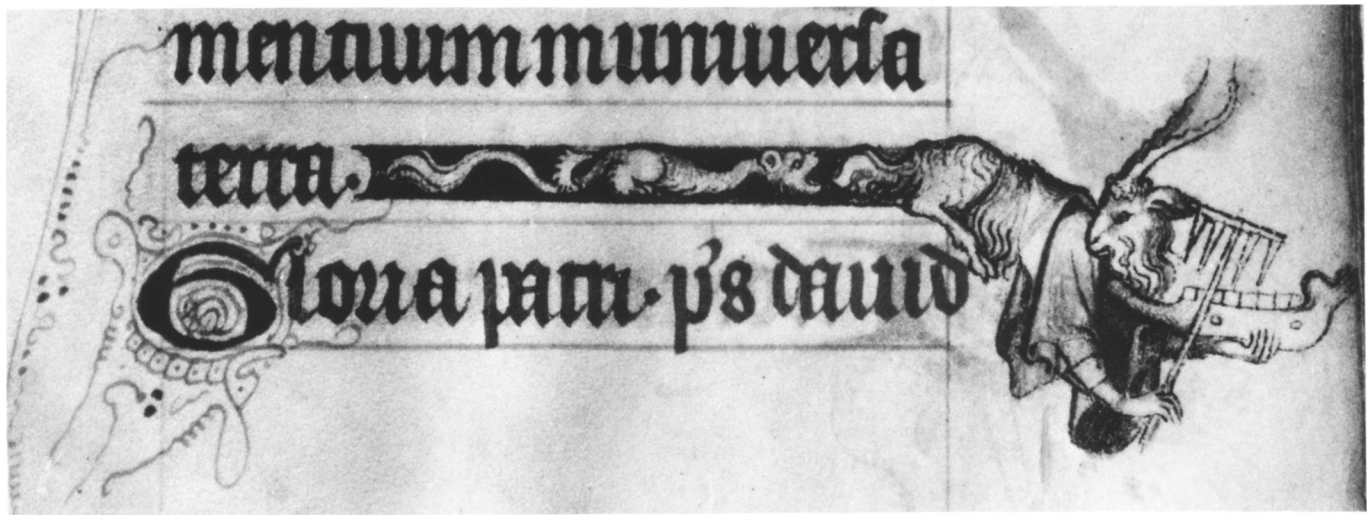 men tuum in uniuersa
terra.
Gloria patri. p̄s dauid